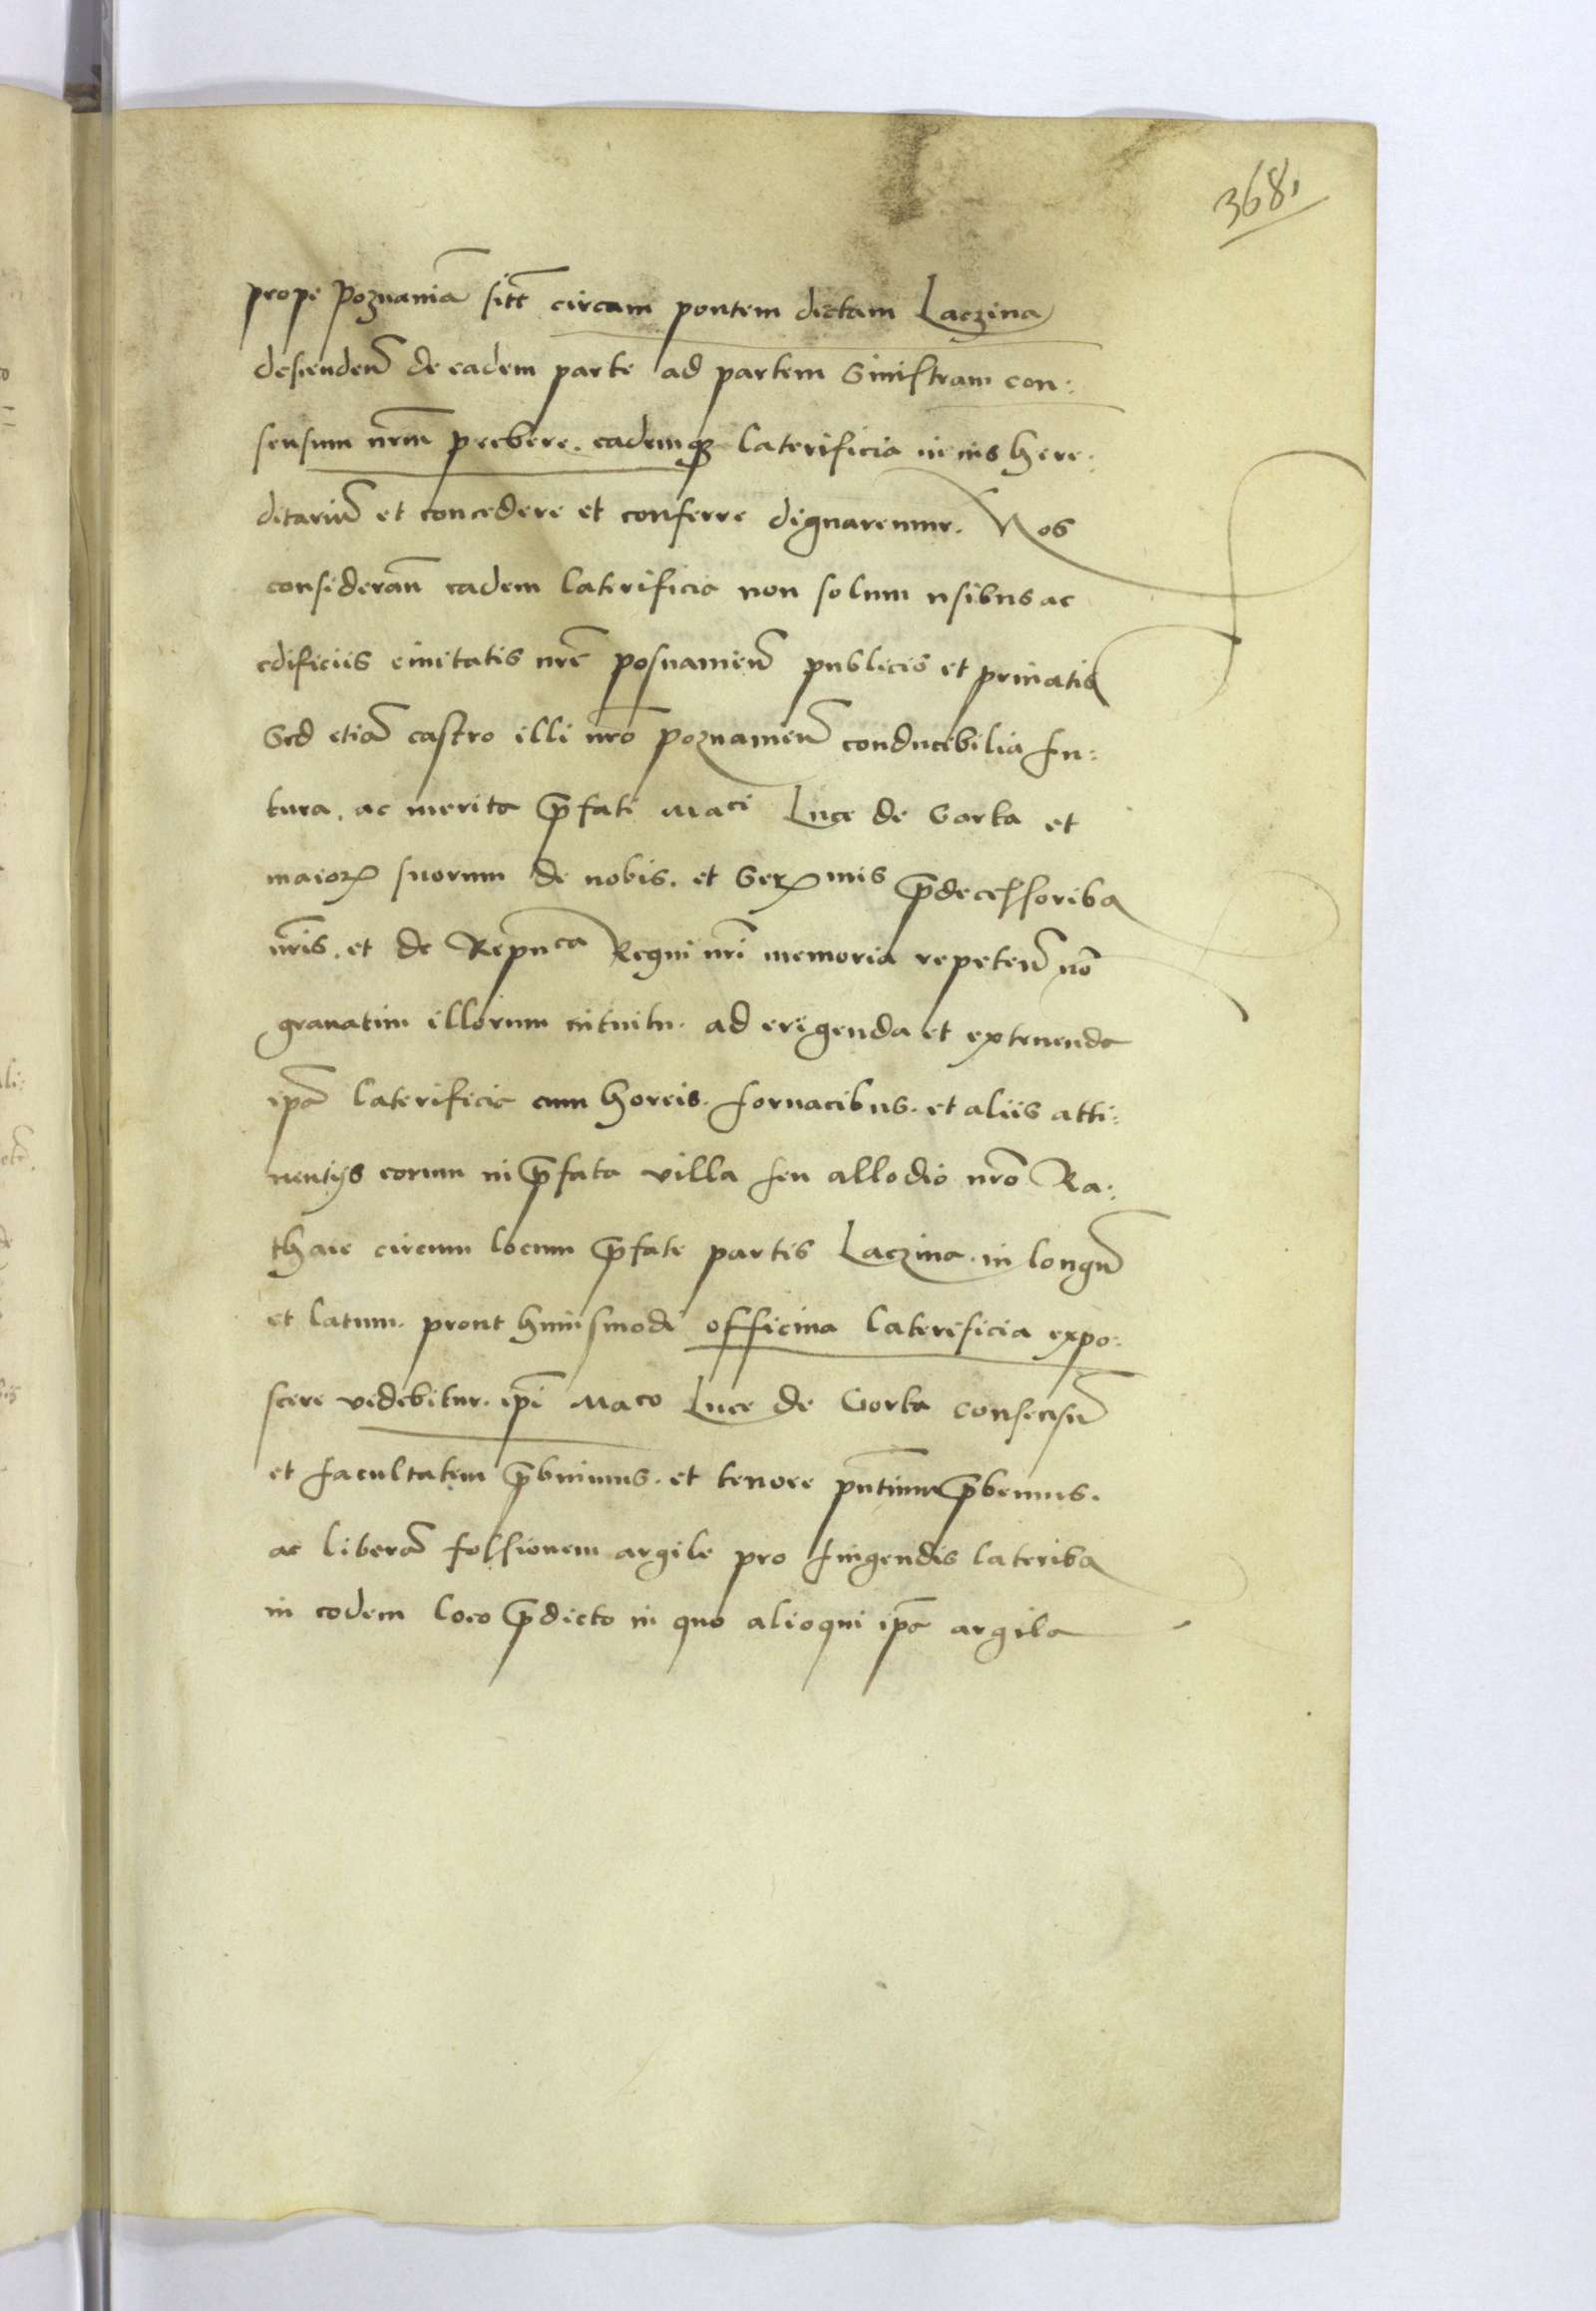 368
prope Poznaniã sitt̃ circam pontem dictam Laczina
desiendeñ de eadem parte ad partem Sinistram con:
sensum nr̃m prebere. eademqꝫ laterificia in ius here:
ditariũ et concedere et conferre dignaremur. Nos
considerañ eadem laterificia non solum usibus ac
edificiis civitatis nr̃e posnanieñ publicis et privatis
Sed etiã castro illi nr̃o poznanieñ conducibilia fu:
tura. ac merita p̃fati Maci Luce de Gorka et
maioꝝ suorum de nobis. et Serꝫmis p̃decessoribꝯ
nr̃is. et de Repuca Regni nr̃i memoria repeteñ nõ
gravatim illorum intuitu. ad erigenda et extruenda
ipã laterificia cum horeis. fornacibus. et aliis atti:
nentijs eorum in p̃fata villa seu allodio nr̃o Ra:
thaie circum locum p̃fate partis Laczina. in longũ
et latum. prout huiusmodi officina laterificia expo:
scere videbitur. ip̃i Maco Luce de Gorka consensũ
et facultatem p̃buimus. et tenore pñtium p̃bemus.
ac liberã fossionem argile pro fingendis lateribꝯ
in eodem loco p̃dicto in quo alioqui ip̃a argila